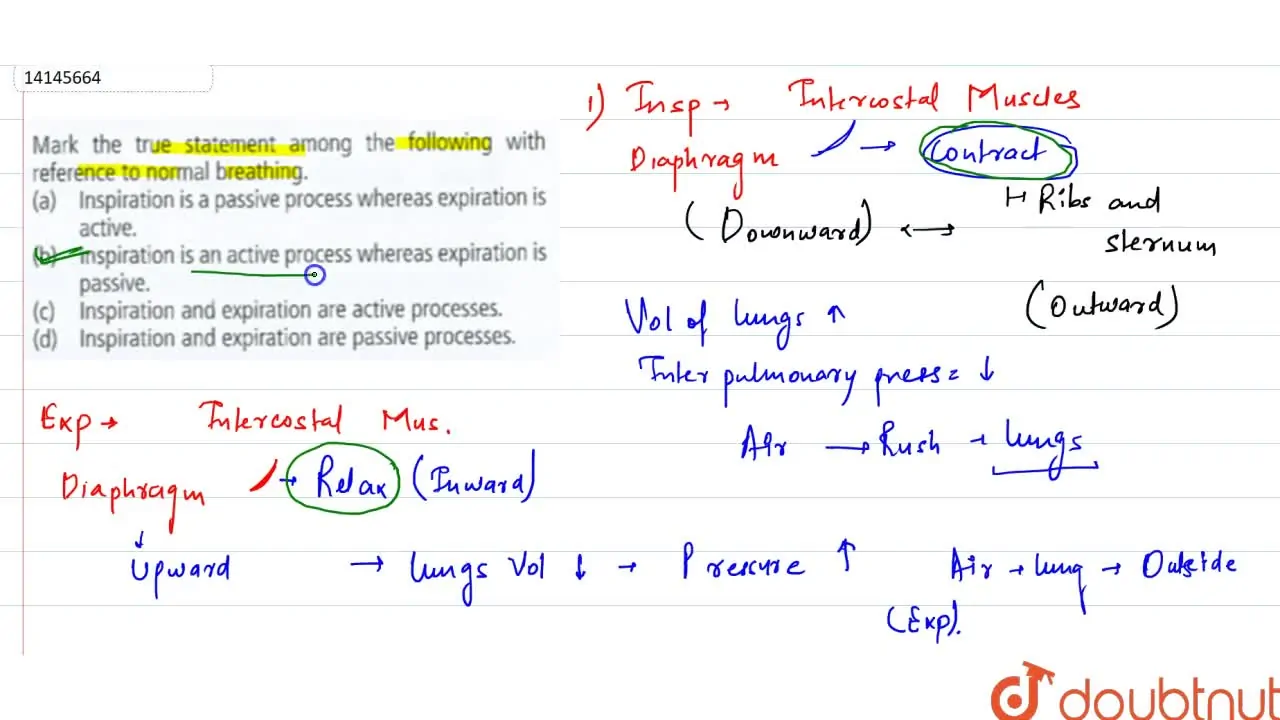 14145664
Mark the true statement among the following with
reference to normal breathing.
(a) Inspiration is a passive process whereas expiration is
active.
(b) Inspiration is an active process whereas expiration is
passive.
(c) Inspiration and expiration are active processes.
(d) Inspiration and expiration are passive processes.
1) Insp → Intercostal Muscles
Diaphragm → Contract
(Downward) ↔ Ribs and
sternum
(Outward)
Vol of lungs ↑
Inter pulmonary press = ↓
Air → Rush → lungs
Exp → Intercostal Mus.
Diaphragm → Relax (Inward)
↓
Upward → lungs Vol ↓ → Pressure ↑ Air → lung → Outside
(Exp).
doubtnut